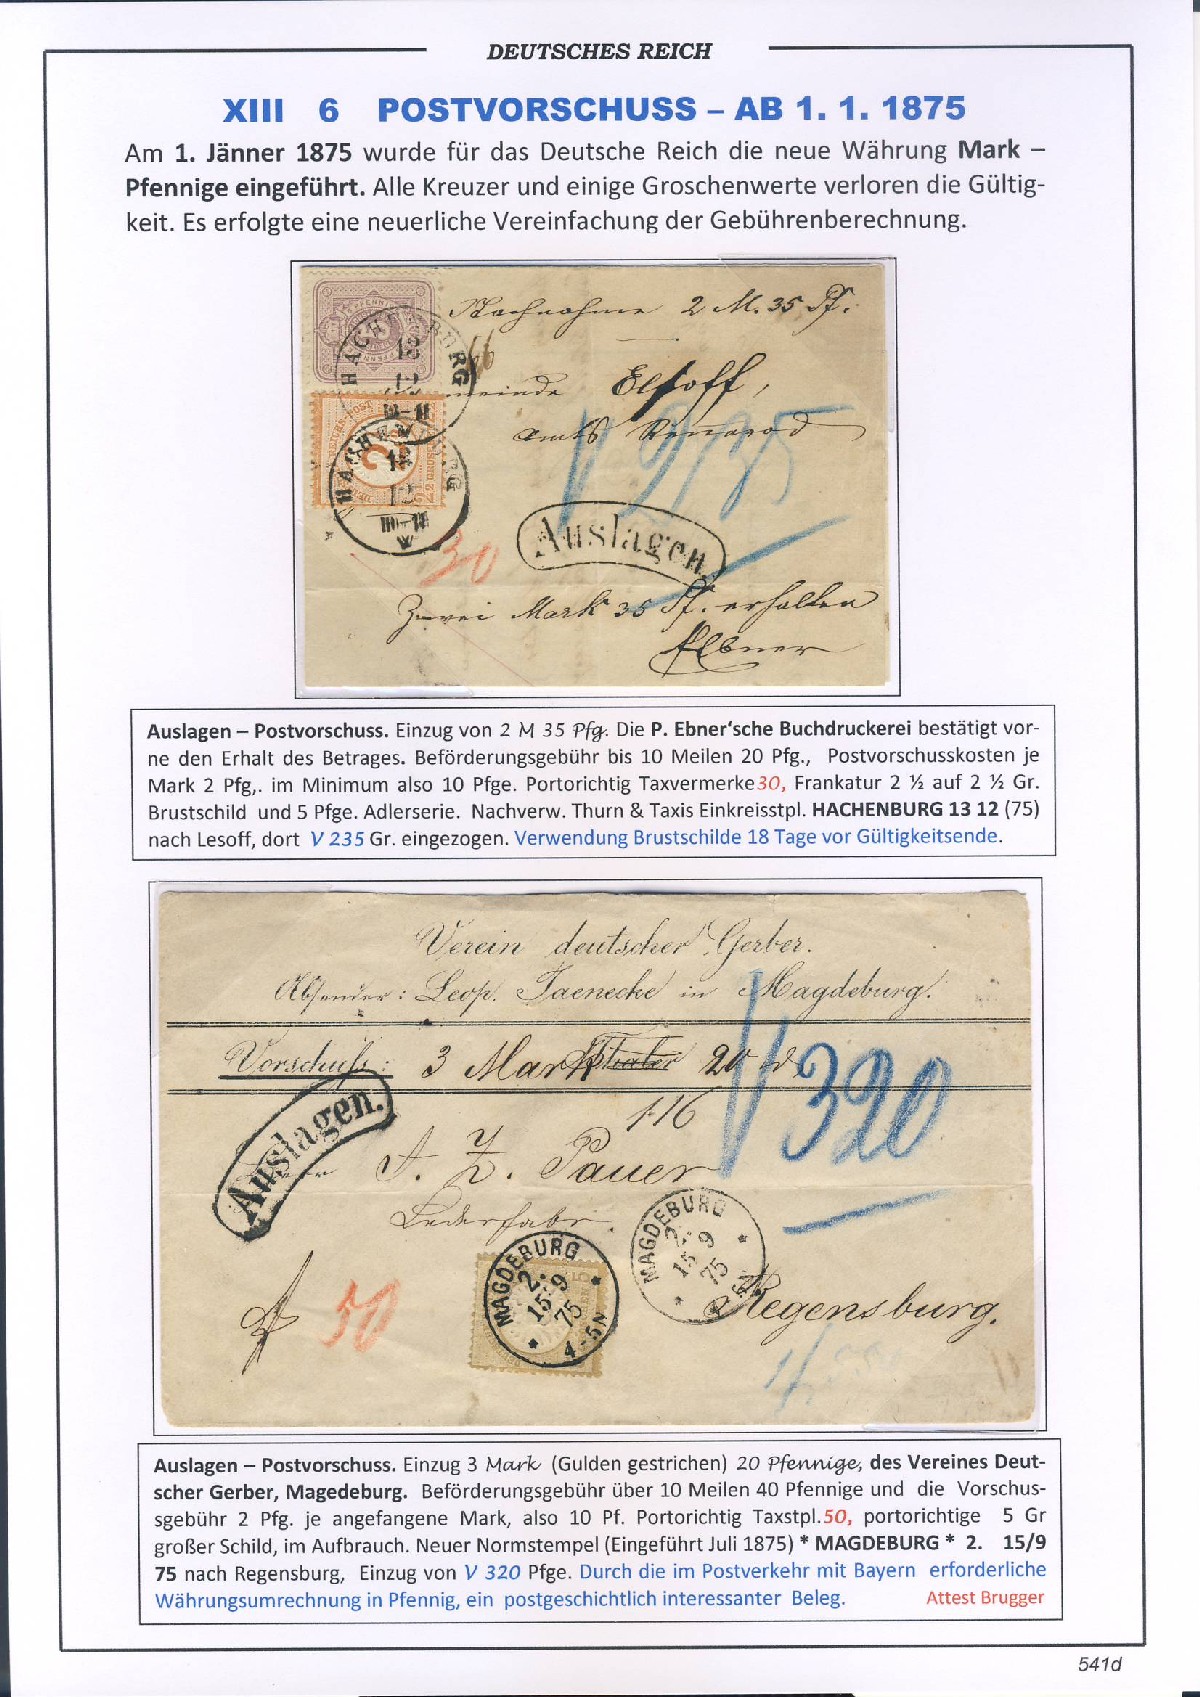 DEUTSCHES REICH
XIII 6 POSTVORSCHUSS – AB 1. 1. 1875
Am 1. Jänner 1875 wurde für das Deutsche Reich die neue Währung Mark –
Pfennige eingeführt. Alle Kreuzer und einige Groschenwerte verloren die Gültig-
keit. Es erfolgte eine neuerliche Vereinfachung der Gebührenberechnung.
Nachnahme 2 M. 35 Pf.
HACHENBURG
13
12
Elsoff,
Amts Rennerod
V 235
HACHENBURG
13
12
Auslagen.
30
Zwei Mark 35 Pf. erhalten
Ebner
Auslagen – Postvorschuss. Einzug von 2 M 35 Pfg. Die P. Ebner'sche Buchdruckerei bestätigt vor-
ne den Erhalt des Betrages. Beförderungsgebühr bis 10 Meilen 20 Pfg., Postvorschusskosten je
Mark 2 Pfg,. im Minimum also 10 Pfge. Portorichtig Taxvermerke30, Frankatur 2 ½ auf 2 ½ Gr.
Brustschild und 5 Pfge. Adlerserie. Nachverw. Thurn & Taxis Einkreisstpl. HACHENBURG 13 12 (75)
nach Lesoff, dort V 235 Gr. eingezogen. Verwendung Brustschilde 18 Tage vor Gültigkeitsende.
Verein deutscher Gerber.
Absender: Leop. Jaenecke in Magdeburg.
Vorschuß: 3 Mark Thaler 20
V 320
116
Auslagen.
A. Z. Pauer
Lederfabr.
MAGDEBURG
2.
15 9
75
MAGDEBURG
2.
15 9
75
4-5N
50
Regensburg.
Auslagen – Postvorschuss. Einzug 3 Mark (Gulden gestrichen) 20 Pfennige, des Vereines Deut-
scher Gerber, Magedeburg. Beförderungsgebühr über 10 Meilen 40 Pfennige und die Vorschus-
sgebühr 2 Pfg. je angefangene Mark, also 10 Pf. Portorichtig Taxstpl.50, portorichtige 5 Gr
großer Schild, im Aufbrauch. Neuer Normstempel (Eingeführt Juli 1875) * MAGDEBURG * 2. 15/9
75 nach Regensburg, Einzug von V 320 Pfge. Durch die im Postverkehr mit Bayern erforderliche
Währungsumrechnung in Pfennig, ein postgeschichtlich interessanter Beleg. Attest Brugger
541d